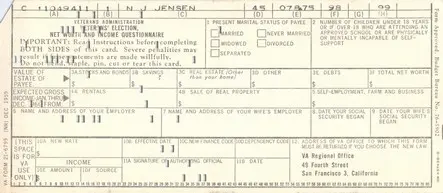 C 11049411 1 N JENSEN 45 07875 98 99
(A) (B) (C) (D) (E) (F) (G) (H)
VETERANS ADMINISTRATION
VETERANS' ELECTION,
NET WORTH AND INCOME QUESTIONNAIRE
IMPORTANT: Read instructions before completing
BOTH SIDES of this card. Severe penalties may
result if statements are made willfully.
Do not fold, staple, pin, cut or tear this card.
1 PRESENT MARITAL STATUS OF PAYEE
MARRIED NEVER MARRIED
WIDOWED DIVORCED
SEPARATED
2 NUMBER OF CHILDREN UNDER 18 YEARS
OR IF OVER 18 WHO ARE ATTENDING AN
APPROVED SCHOOL OR ARE PHYSICALLY
OR MENTALLY INCAPABLE OF SELF-
SUPPORT
VALUE OF ESTATE OF PAYEE
3A STOCKS AND BONDS 3B SAVINGS 3C REAL ESTATE (Other than your home) 3D OTHER 3E DEBTS 3F TOTAL NET WORTH
EXPECTED GROSS INCOME JAN THRU DEC
4A RENTALS 4B SALE OF REAL PROPERTY 5 SELF-EMPLOYMENT, FARM AND BUSINESS
6 NAME AND ADDRESS OF YOUR EMPLOYER 7 NAME AND ADDRESS OF YOUR WIFE'S EMPLOYER 8 DATE YOUR SOCIAL SECURITY BEGAN 9 DATE YOUR WIFE'S SOCIAL SECURITY BEGAN
(THIS SPACE IS FOR VA USE ONLY)
10A NEW RATE 10B EFFECTIVE DATE 10C NEW FINANCE CODE 10D DEPENDENCY CODE
INCOME
10E AMOUNT 10F SOURCE
11A SIGNATURE OF AUTHORIZING OFFICIAL 11B DATE
12 ADDRESS OF VA OFFICE TO WHICH THIS FORM
MUST BE RETURNED IF YOU CHOOSE THE NEW LAW
VA Regional Office
49 Fourth Street
San Francisco 3, California
VA FORM 21-6795 (NR) DEC 1959
Form Approved, Budget Bureau